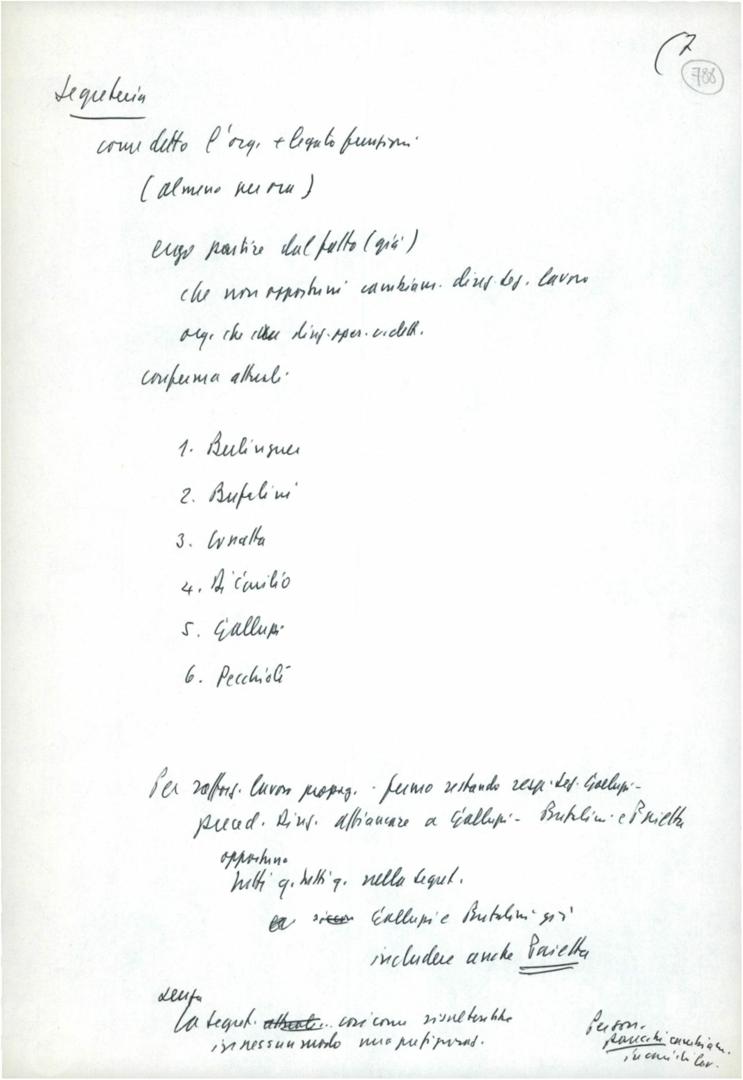 (7
788
Segreteria
come detto l'org. + legato funzioni
(almeno per ora)
ergo partire dal fatto (già)
che non opportuni cambiam. direz. seg. lavoro
org. che direz.
conferma attuali
1. Berlinguer
2. Bufalini
3. Cervetti
4. Di Giulio
5. Galluzzi
6. Pecchioli
Per rafforz. lavoro propag. - fermo restando resp. seg. Galluzzi -
preced. Direz. affiancare a Galluzzi - Bufalini e Pajetta
opportuno
tutti q. tutti q. nella segret.
Galluzzi e Bufalini già
includere anche Pajetta
senza
La segret. così come risulterebbe
in nessun modo
Person.
parecchi cambiam.